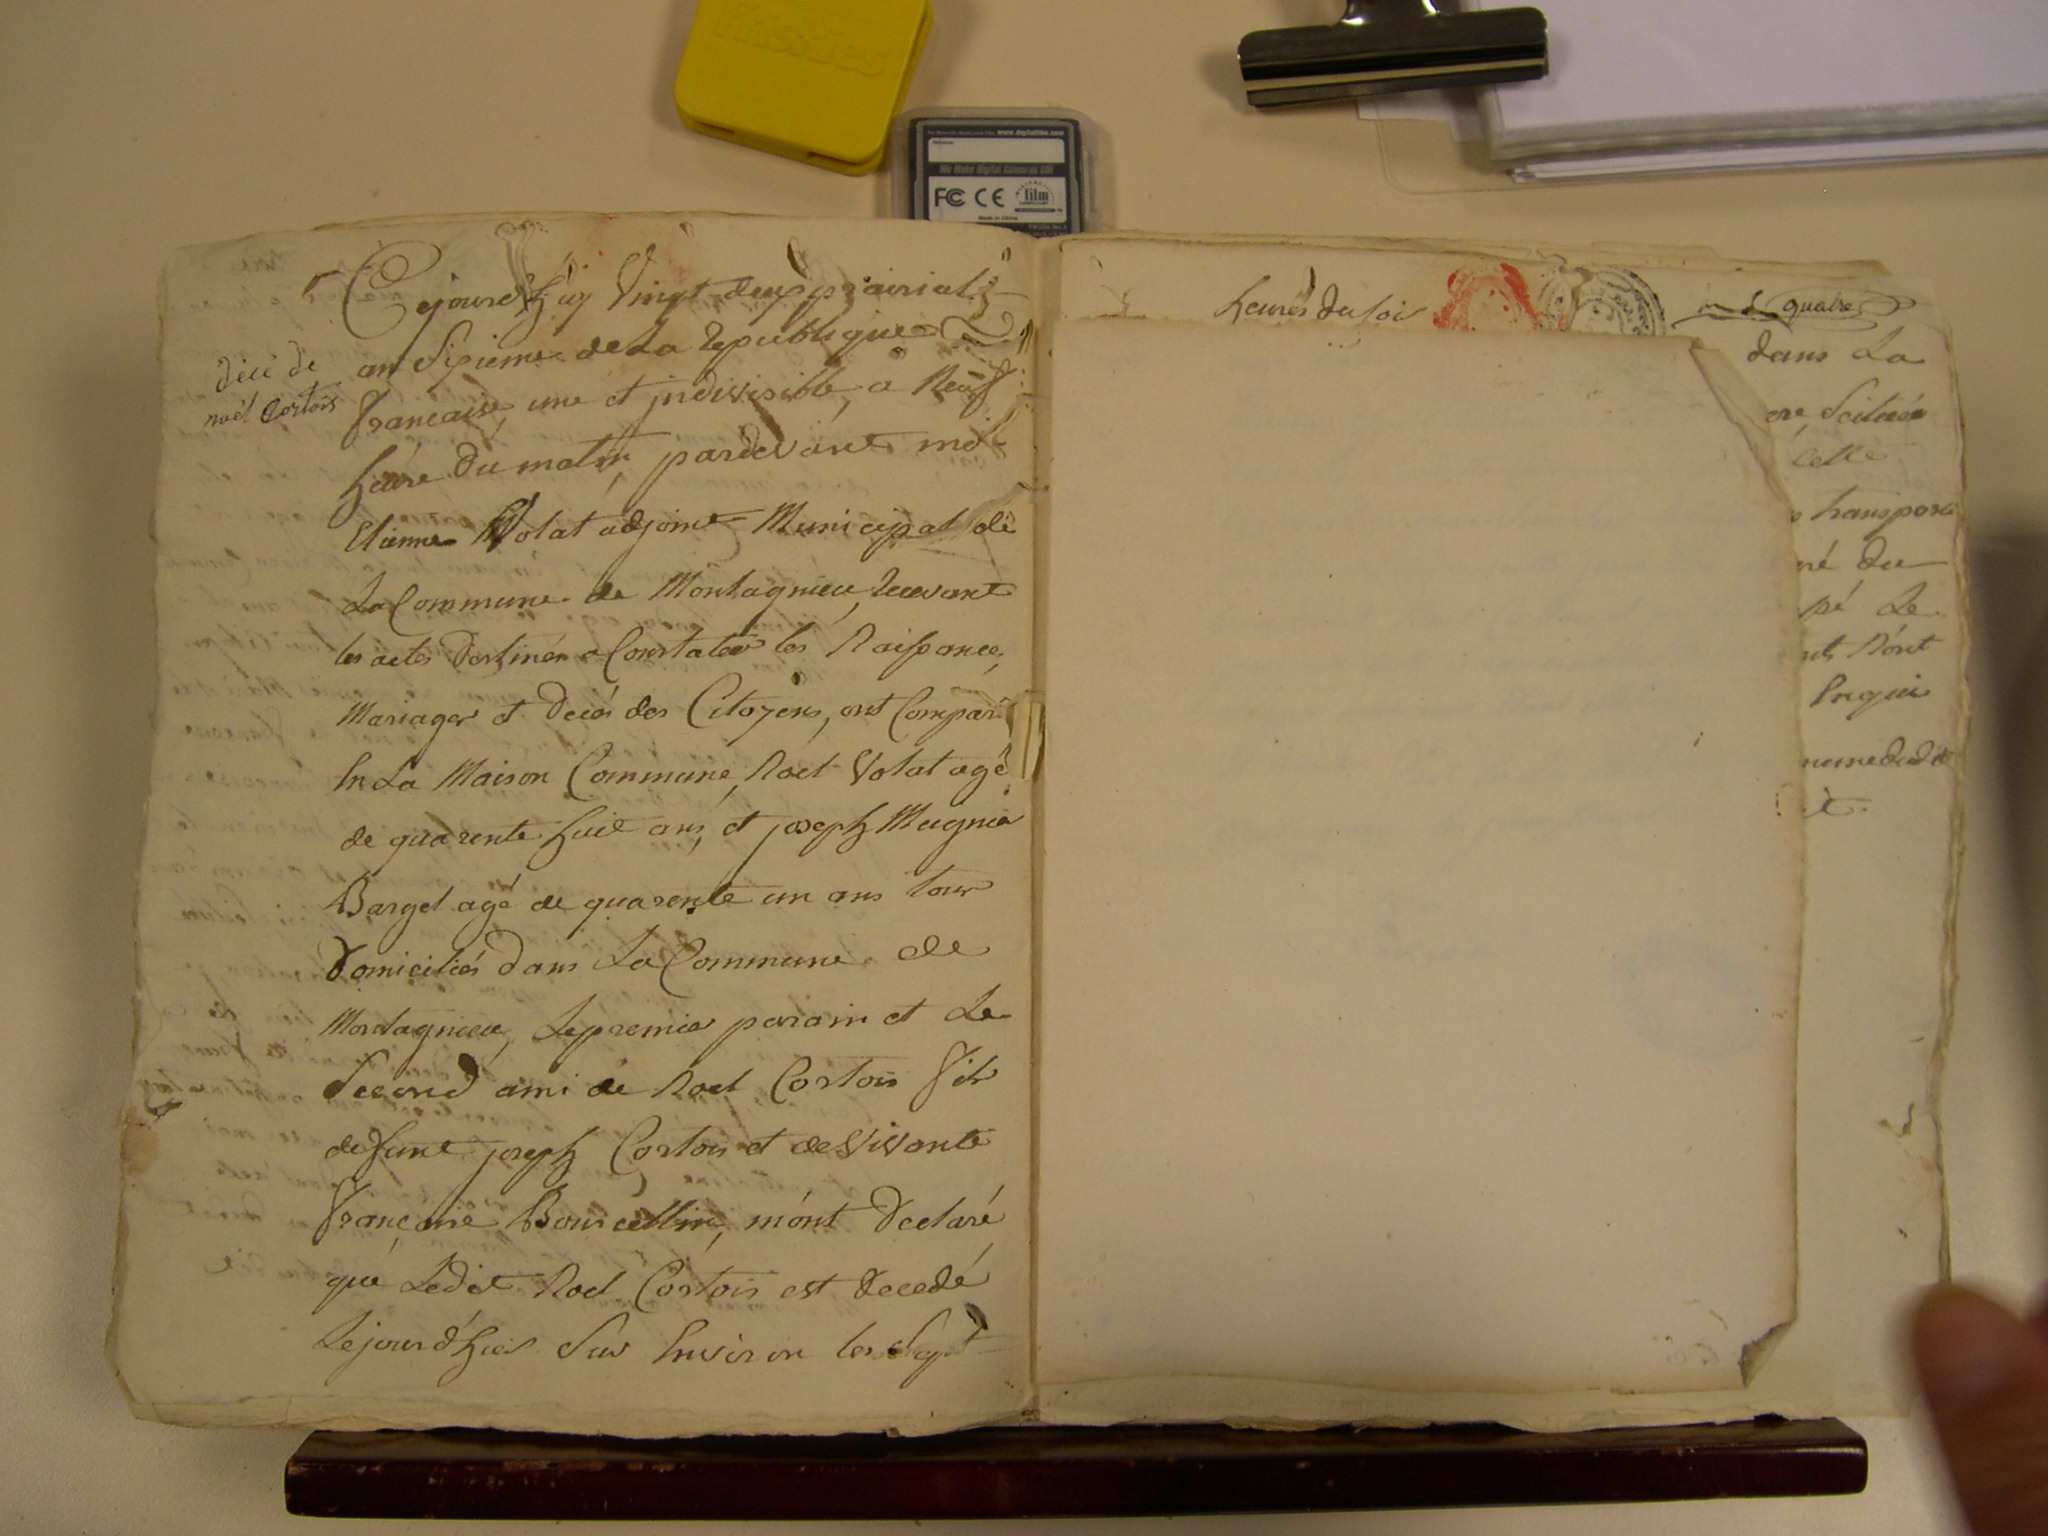 decé de
noël Cortois
Cejourd'huy Vingt deux prairial
an Sixieme de La Republique
francaise, une et jndivisible, a Neuf
heure du matin, pardevant moi
Etienne Volat adjoint Municipal de
La Commune de Montagnieu, Recevant
les actes destinés a Constater les Naissances,
Mariages et Decés des Citoyens, ont Comparu
En La Maison Commune, Noel Volat agé
de quarente huit ans, et joseph Mugnier
Barget agé de quarente un ans tous
Domiciliés dans La Commune de
Montagnieu, Le premier parain et Le
Second ami de Noel Cortois fils
defunt joseph Cortois et de Vivante
françoise Bourcellin, m'ont Declaré
que Ledit Noel Cortois est Decedé
Le jour d'hier Sur Environ les Sept
heures du soir
quatre
dans La
ere, Scituée
cette
transporté
né du
pé Le
nts N'ont
Enquis
mune dudit
et
www.dogitalfilm.com
We Make Digital Cameras GO!
FC CE
film
Made in China